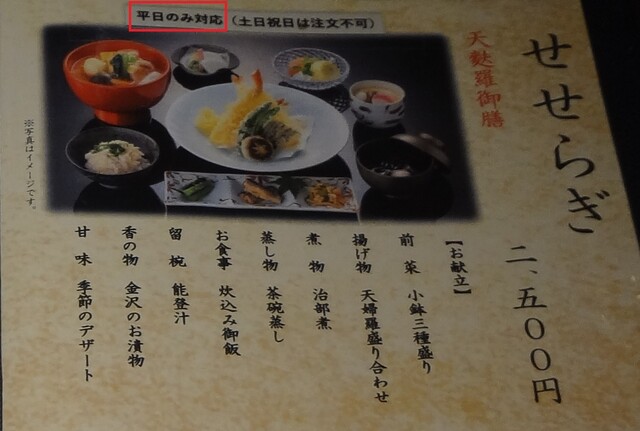 平日のみ対応（土日祝日は注文不可）
せせらぎ
二、五〇〇円
天麩羅御膳
【お献立】
前菜 小鉢三種盛り
揚げ物 天婦羅盛り合わせ
煮物 治部煮
蒸し物 茶碗蒸し
お食事 炊込み御飯
留椀 能登汁
香の物 金沢のお漬物
甘味 季節のデザート
※写真はイメージです。